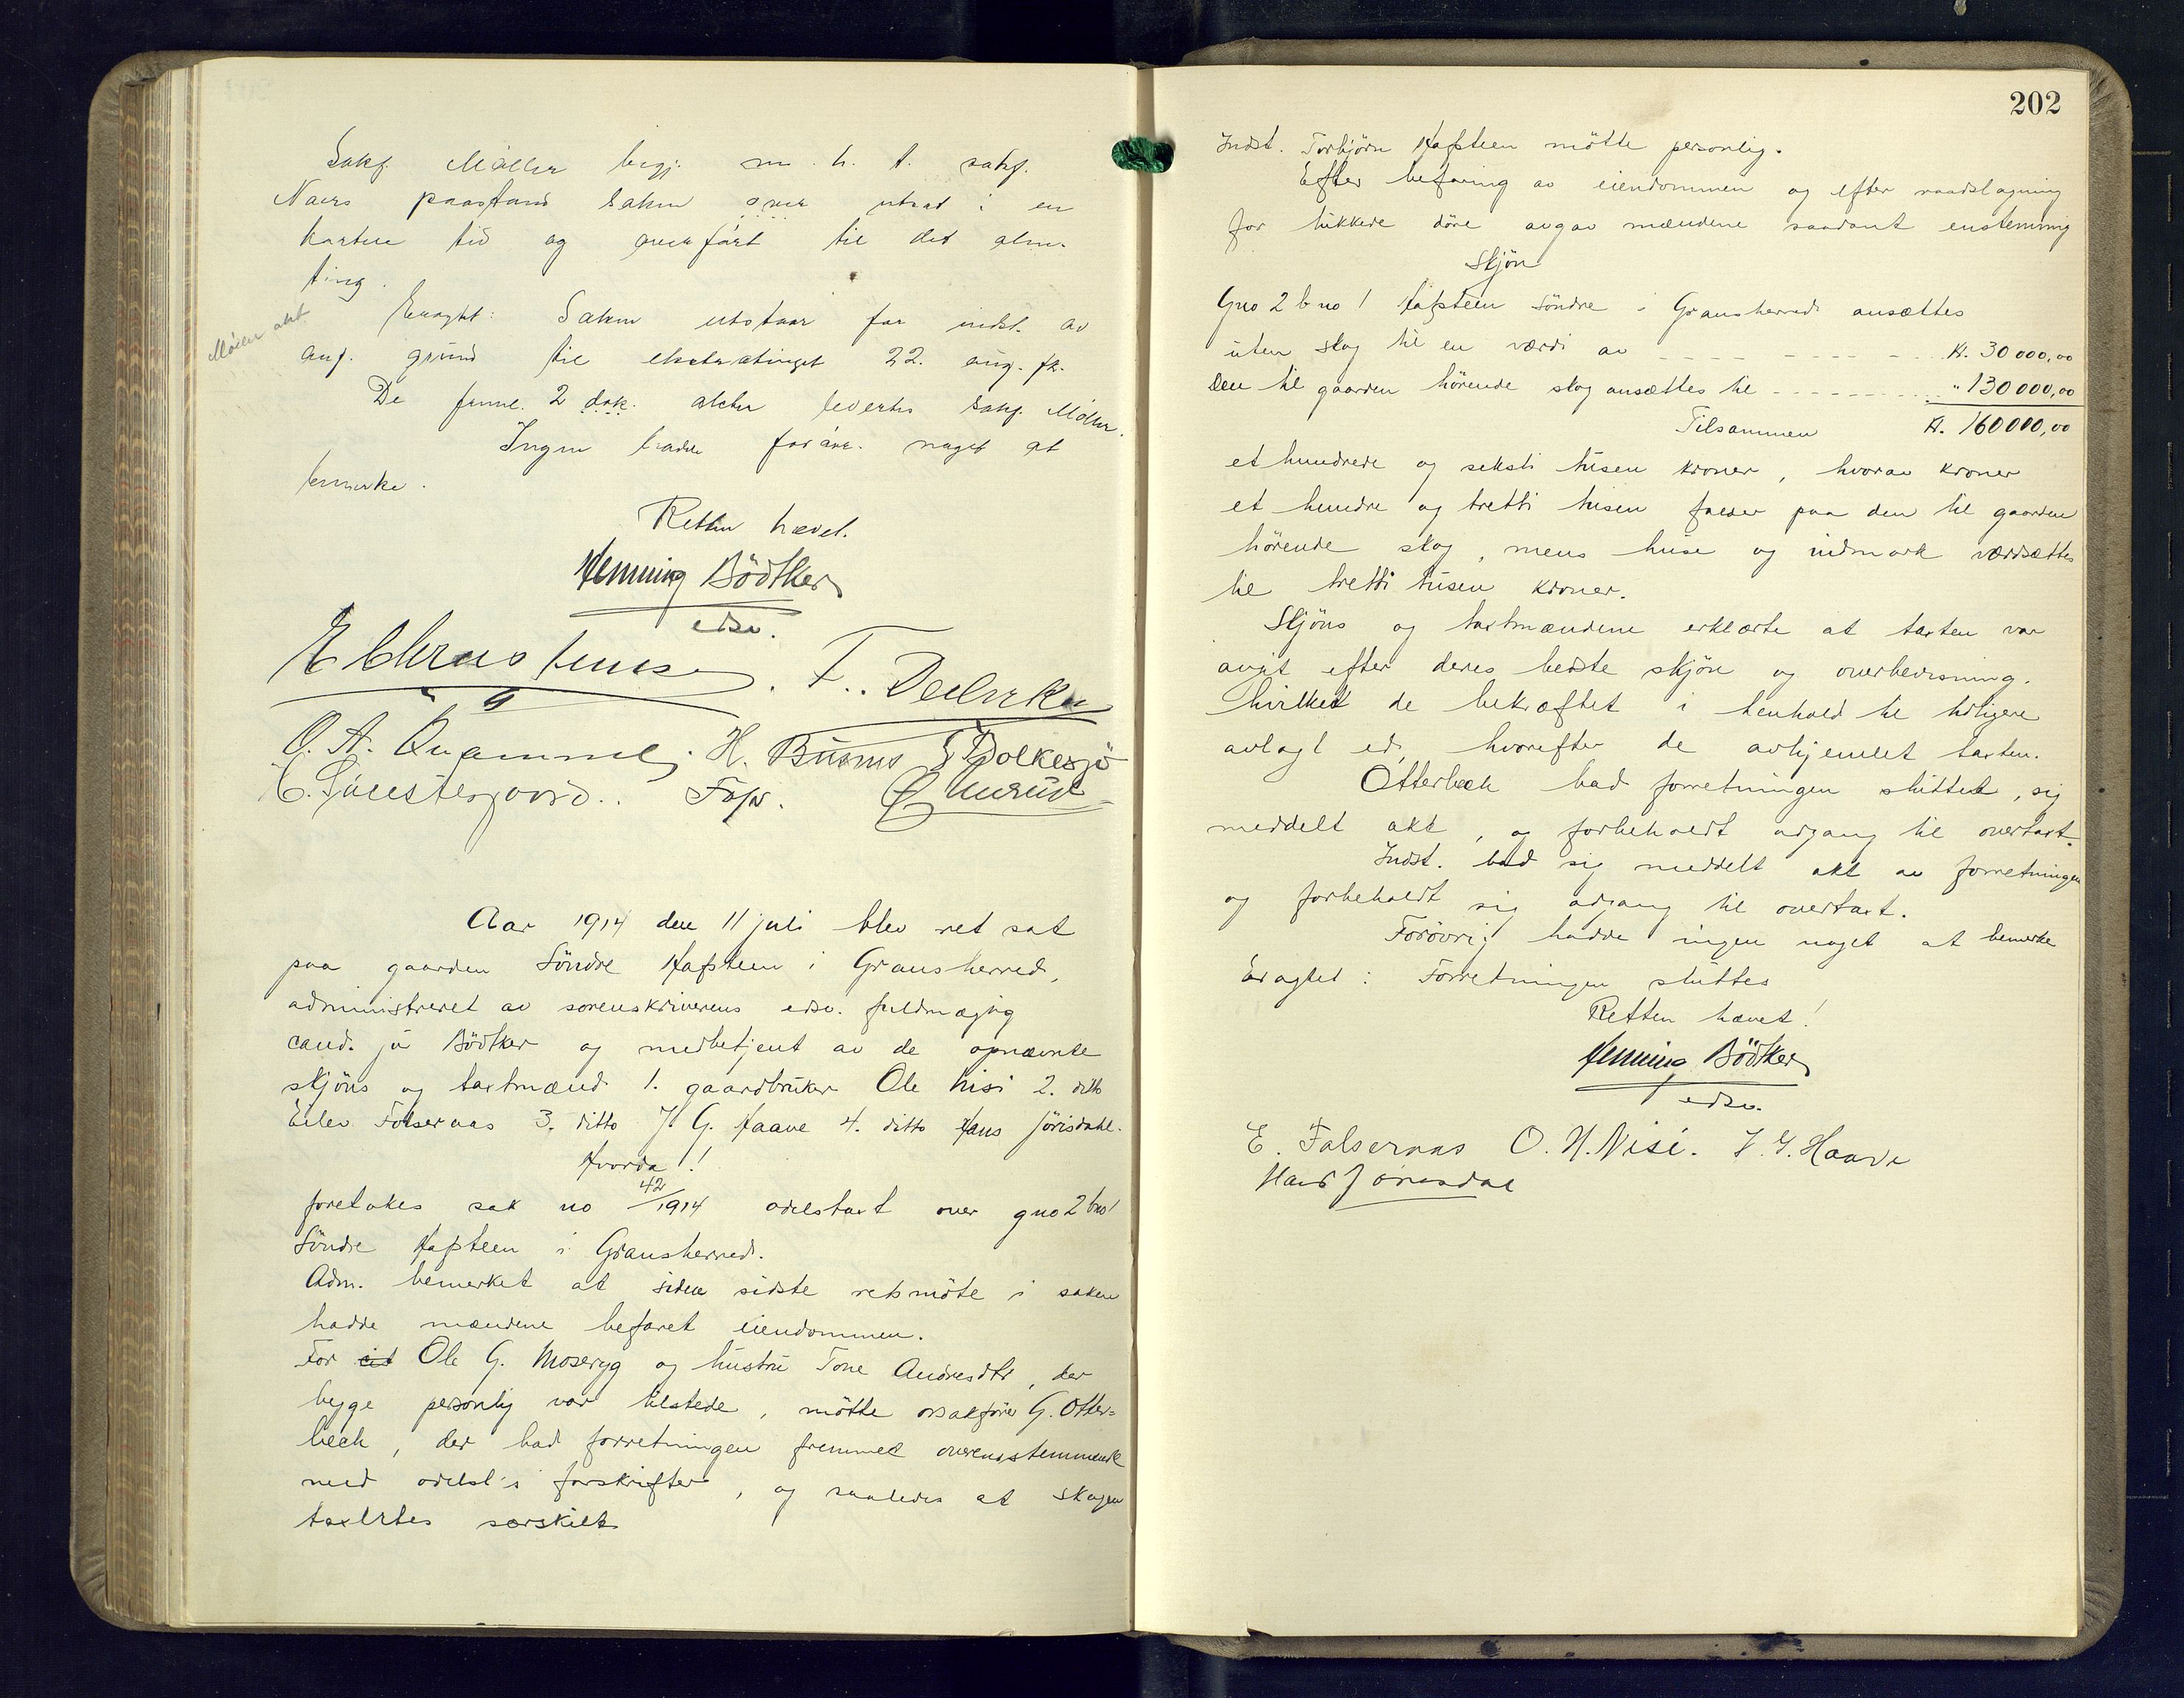 Sakf. Møller begj. m. h. t. sakf.
Naers paastand saken utsat i en
kortere tid og overført til det alm.
ting.
Møller akt
Eragtet: Saken utstaar for indst. av
anf. grund til ekstratinget 22. aug. fk.
De freml. 2 dok. akter levertes sakf. Møller.
Ingen hadde forøvr. noget at
bemerke.
Retten hævet.
Henning Bödtker
edsv.
E Christensen. T.
O. A. Quammel. H. Busnes E Bolkesjö
Fopr.
Aar 1914 den 11 juli blev ret sat
paa gaarden Söndre Hafsteen i Gransherred,
administreret av sorenskriverens edsv. fuldmægtig
cand. jur Bödtker og medbetjent av de opnævnte
skjöns og taxtmænd 1. gaardbruker Ole Nisi 2. ditto
Eilev Folsernas 3. ditto J. G. Haave 4. ditto Hans Jörisdahl.
Hvorda!!
foretokes sak no 42/1914 odelstaxt over gno 2 bno 1
Söndre Hafsteen i Gransherred.
Adm. bemerket at siden sidste retsmöte i saken
hadde mændene befaret eiendommen.
For Ole G. Moseryg og hustru Tone Andresdtr, der
begge personlig var tilstede, mötte orsakförer G. Otter=
bech, der bad forretningen fremmet overensstemmende
med odelsl's forskrifter, og saaledes at skogen
taxertes særskilt
202
Indst. Torbjörn Hafsteen mötte personlig.
Efter befaring av eiendommen og efter raadslagning
for lukkede döre avgav mændene saadant enstemmig
Skjön
Gno 2 bno 1 Hafsteen Söndre i Gransherred ansættes
uten skog til en værdi av - - - - - - Kr. 30 000,00
Den til gaarden hörende skog ansættes til - - - - - - " 130 000,00
Tilsammen Kr. 160 000,00
et hundrede og seksti tusen kroner, hvorav kroner
et hundre og tretti tusen falder paa den til gaarden
hörende skog, mens huse og indmark værdsættes
til tretti tusen kroner.
Skjöns og taxtmændene erklærte at taxten var
avgit efter deres bedste skjön og overbevisning.
hvilket de bekræftet i henhold til tidligere
avlagt ed, hvorefter de avhjemlet taxten.
Otterbech bad forretningen sluttet, sig
meddelt akt, og forbeholdt adgang til overtaxt.
Indst. bad sig meddelt akt av forretningen
og forbeholdt sig adgang til overtaxt.
Forövrig hadde ingen noget at bemerke
Eragtet: Forretningen sluttes
Retten hævet!
Henning Bödtker
edsv.
E. Falsernas O. H. Nisi. J. G. Haave
Hans Jörisdal